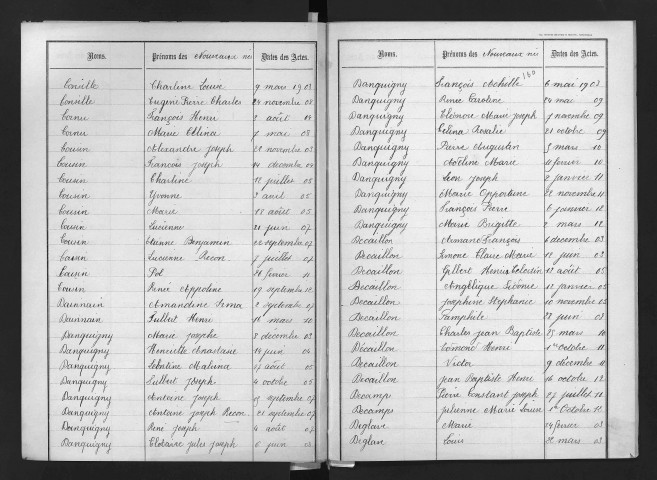 Noms. Prénoms des Nouveaux nés Dates des Actes.
Conille Charline Louise 9 mars 1903
Conille Eugène Pierre Charles 24 novembre 08
Cornu François Henri 2 août 04
Cornu Marie mai 08
Cousin Alexandre Joseph 22 novembre 03
Cousin François Joseph 14 décembre 04
Cousin Charline 12 juillet 05
Cousin Yvonne 2 avril 05
Cousin Marie 18 août 05
Cousin Lucienne 21 juin 07
Cousin Benjamin 22 septembre 07
Cousin Lucienne juillet 07
Cousin Pol février 11
Cousin René 19 septembre 12
Daunnain Amandine Irma 2 septembre 07
Daunnain Henri 16 mars 11
Danquigny Marie Josèphe 3 décembre 03
Danquigny Henriette Anastasie 14 juin 04
Danquigny Léontine août 05
Danquigny Joseph 4 octobre 05
Danquigny Antoine Joseph 25 septembre 07
Danquigny Antoine Joseph 21 septembre 07
Danquigny René Joseph 4 août 07
Danquigny Clotaire Jules Joseph 6 juin 08
Noms. Prénoms des Nouveaux nés Dates des Actes.
Danquigny François Achille 6 mai 1908
Danquigny Renée Caroline 24 mai 09
Danquigny Eléonore Marie Joseph novembre 09
Danquigny Célina Rosalie 21 octobre 09
Danquigny Pierre Augustin 5 mars 10
Danquigny Marie 11 février 10
Danquigny Léon Joseph 2 janvier 11
Danquigny Marie Opportune 22 novembre 11
Danquigny François Pierre 6 janvier 12
Danquigny Marie Brigitte 2 mars 12
Decaillon Armand François 1 décembre 03
Decaillon Simone Claire Marie 18 juin 03
Decaillon Gilbert Henri Célestin 12 août 05
Decaillon Angélique 12 janvier 05
Decaillon Joséphine Stéphanie 10 novembre 05
Decaillon Pamphile 28 juin 03
Decaillon Charles Jean Baptiste 25 mars 10
Décaillon Edmond Henri 1er octobre 11
Decaillon Victor 9 décembre 11
Decaillon Jean Baptiste Henri 14 octobre 12
Decamps Pierre Constant Joseph 27 juillet 11
Decamps Julienne Marie Louise 1er Octobre 12
Deglave Marie 24 février 03
Deglas Louis 31 mars 03